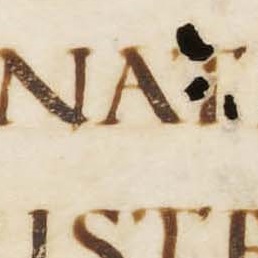 NAT
ISTE